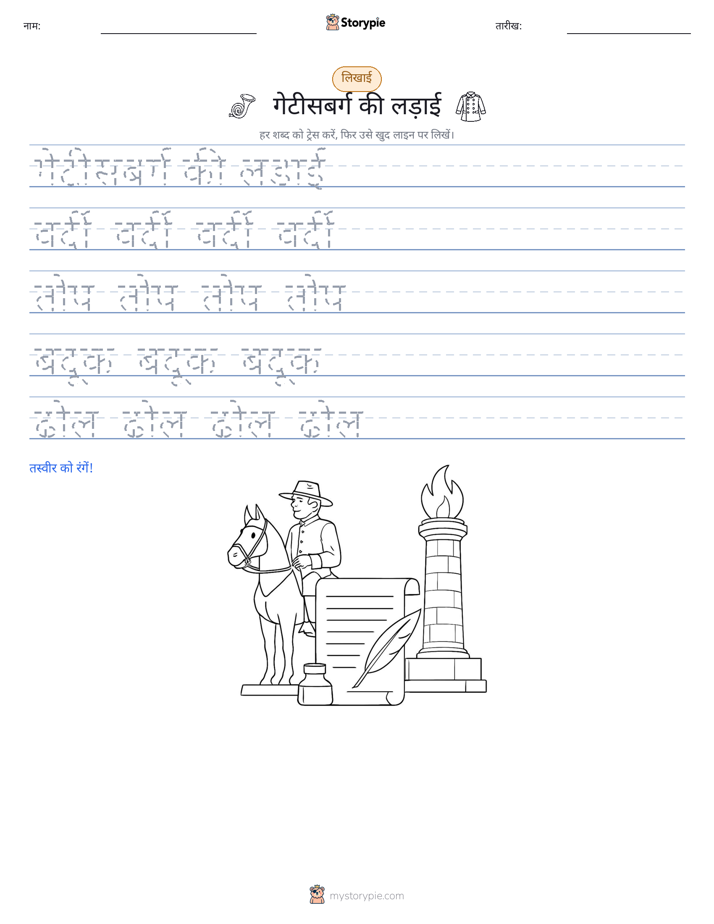 नाम:
Storypie
तारीख:
लिखाई
गेटीसबर्ग की लड़ाई
हर शब्द को ट्रेस करें, फिर उसे खुद लाइन पर लिखें।
गेटीसबर्ग की लड़ाई
वर्दी वर्दी वर्दी वर्दी
तोप तोप तोप तोप
बंदूक बंदूक बंदूक
ढोल ढोल ढोल ढोल
तस्वीर को रंगें!
mystorypie.com